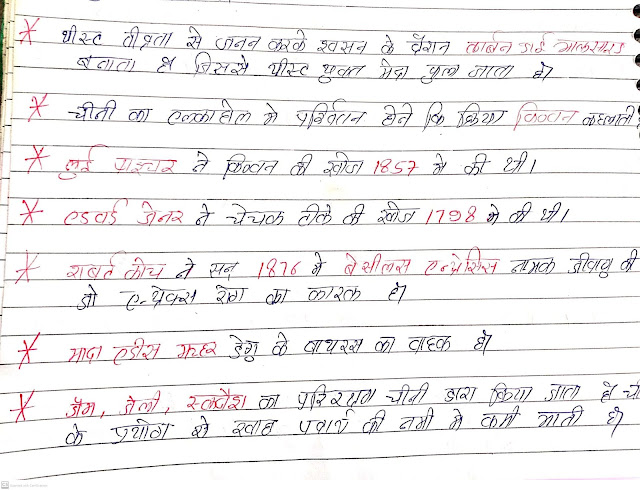 * यीस्ट तीव्रता से जनन करके श्वसन के दौरान कार्बन डाई आक्साइड
बनाता है जिससे यीस्ट युक्त मैदा फुल जाता है।
* चीनी का एल्काहोल मे परिवर्तन होने कि क्रिया किण्वन कहलाती
* लुई पाश्चर ने किण्वन की खोज 1857 मे की थी।
* एडवर्ड जेनर ने चेचक टीके की खोज 1798 मे की थी।
* राबर्ट कोच ने सन् 1876 मे बेसीलस एन्थ्रेसिस नामक जीवाणु की
जो एन्थ्रेक्स रोग का कारक है।
* मादा एडीस मच्छर डेंगू के वायरस का वाहक है।
* जैम, जेली, स्क्वैश का परिरक्षण चीनी द्वारा किया जाता है ची
के प्रयोग से खाद्य पदार्थ की नमी मे कमी आती है।